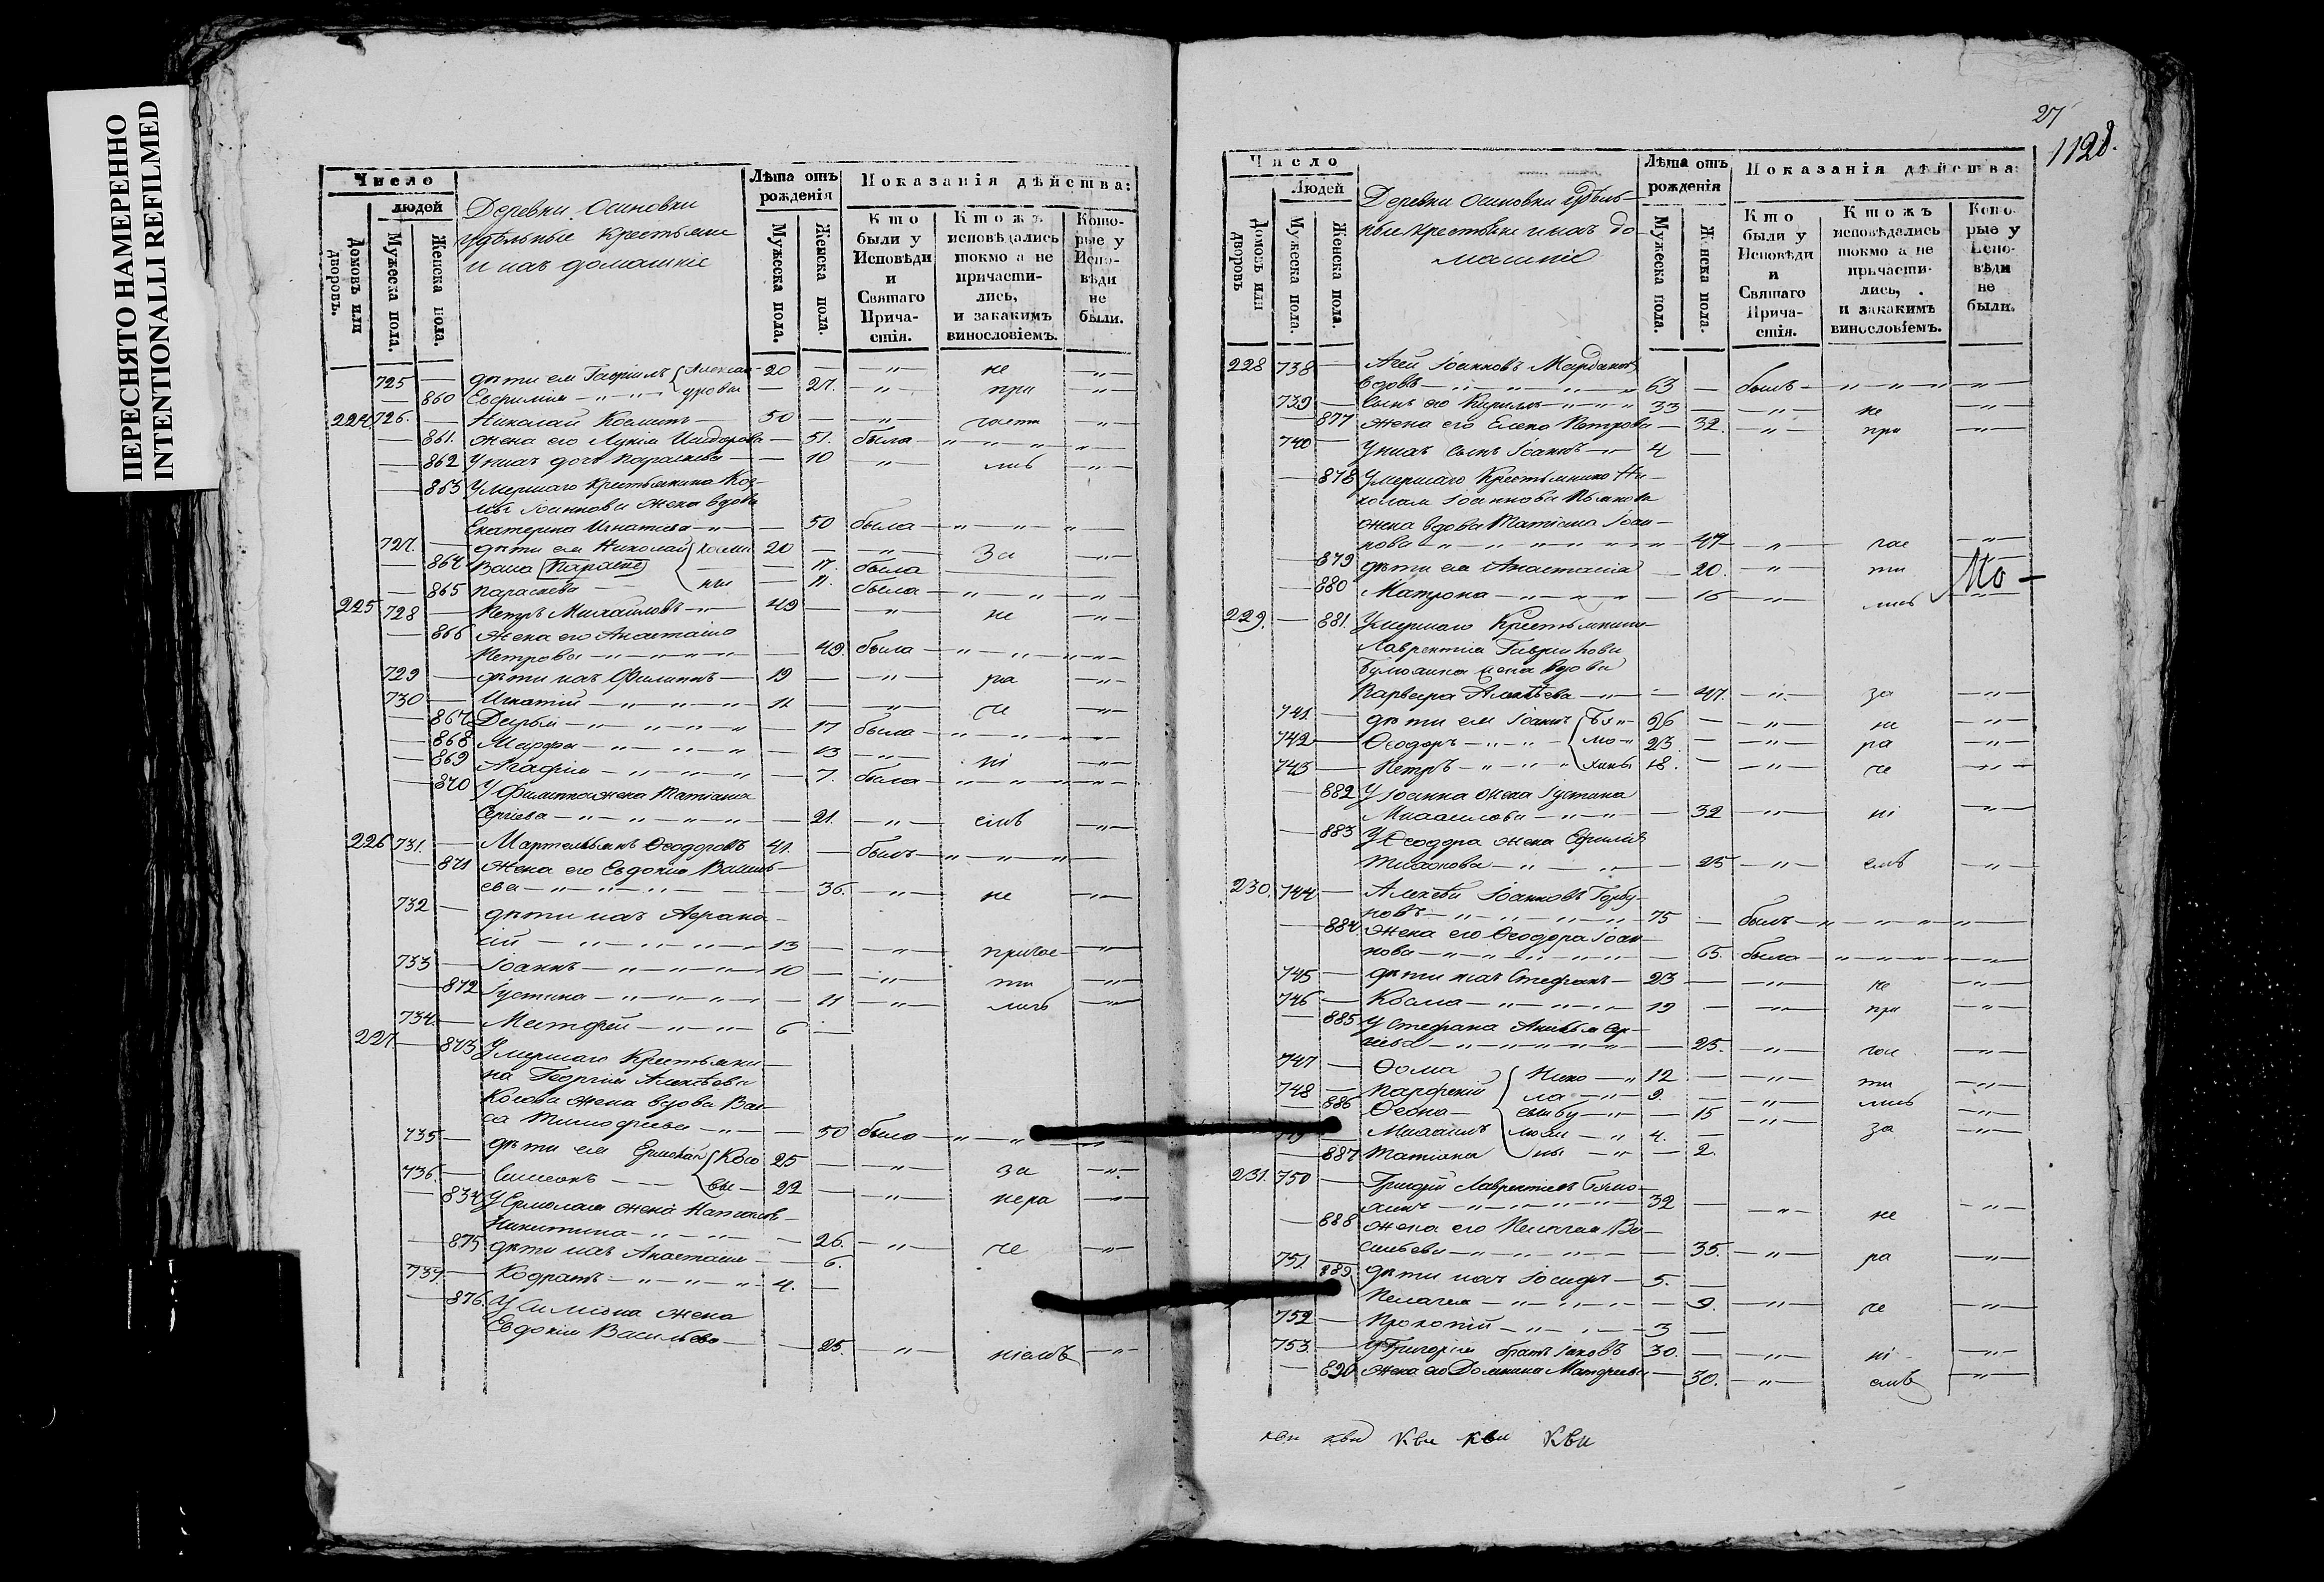 ПЕРЕСНЯТО НАМЕРЕННО
INTENTIONALLI REFILMED
Число
людей
Домовъ или дворовъ.
Мужеска пола.
Женска пола.
Деревни Осиновки
удѣльные крестьяне
и ихъ домашніе
Лѣта отъ рожденія
Мужеска пола.
Женска пола.
Показанія дѣйства:
Кто были у Исповѣди и Святаго Причастія.
Ктожъ исповѣдались токмо а не причастились, и закакимъ винословіемъ.
Которые у Исповѣди не были.
725 — дѣти ея Гавриилъ 20 — не
— 860 Евфимия — 27. при
224 726. — Николай Косминъ — 50 — части
— 861. жена его — 51. была
— 862 У нихъ дочь Параскева — 10 лись
— 863 Умершаго крестьянина Коз-
мы Іоаннова жена вдова
Екатерина Игнатьева — 50 была
727. — дѣти ея Николай 20 — За
— 864 — 17. была
— 865 Параскева — 11. была
225 728 — Петръ Михайловъ — 49 — не
— 866 жена его Анастасия
Петрова — 49. была
729 — дѣти ихъ Филиппъ — 19 — ра
730 — Игнатій — 11 — че
— 867 Дарья — 17 была
— 868 Марфа — 13 ні
— 869 Агафія — 7. была
— 870 У Филиппа жена Татіана
Сергіева — 21. емъ
226 731. — Мартемьянъ Ѳеодоровъ 41. — былъ
— 871 жена его Евдокия Василь-
ева — 36. не
732 — дѣти ихъ Аѳана-
сій — 13 — причас
733 — Іоаннъ — 10 — ти
— 872 Іустина — 11 лись
734. — Матфей — 6 —
227 — 873 Умершаго Крестьяни-
на Георгія Алексѣева
Косова жена вдова Вас-
са Тимофеева — 50 была
735 — дѣти ея Ермолай Косо 25 — за
736. — Симеонъ — вы — 22 — нера
— 874 У Ермолая жена
Никитина — 26. че
— 875 дѣти ихъ Анастасия — 6.
737. — Кодратъ — 4. —
— 876. У Симіона жена
Евдокія Васильева — 25. ніемъ
27
1128.
Число
Людей
Домовъ или дворовъ
Мужеска пола.
Женска пола.
Деревни Осиновки Удѣль-
ные крестьяне и ихъ до-
машніе
Лѣта отъ рожденія
Мужеска пола.
Женска пола.
Показанія дѣйства:
Кто были у Исповѣди и Святаго Причастія.
Ктожъ исповѣдались токмо а не причастились, и закакимъ винословіемъ.
Которые у Исповѣди не были.
228 738 — Агей Іоанновъ
вдовъ — 63 — былъ
739 — сынъ его Кириллъ — 33 — не
— 877 жена его Елена Петрова — 32. при
740 — У нихъ сынъ Іоаннъ — 4 —
— 878 Умершаго Крестьянина Ни-
колая Іоаннова
жена вдова Татіана Іоан-
нова — 47 — час
— 879 дѣти ея Анастасія — 20. ти
— 880 Матрона — 16 лись
229. — 881. Умершаго Крестьянина
Лаврентія Гаврилова
жена вдова
Варвара Алексѣева — 47. за
741 — дѣти ея Іоаннъ 26 — не
742 — Ѳеодоръ — 23. — ра
743 — Петръ — 18. — че
— 882 У Іоанна жена Іустина
Михаилова — 32 ні
— 883 У Ѳеодора жена
Тихонова — 25 емъ
230. 744 — Алексѣй Іоанновъ Горбу-
новъ — 75 — былъ
— 884. жена его Ѳеодора Іоан-
нова — 65. была
745 — дѣти ихъ Стефанъ — 23 — не
746 — Косма — 19 — при
— 885 У Стефана Сер-
гіева — 25. час
747 — Ѳома 12 — ти
748 — Парфеній 9. — лись
— 886 Ѳеона — 15 за
Михаилъ 4. —
— 887 Татіана — 2.
231. 750 — Григорій Лаврентіевъ
— 32 — не
— 888 жена его Пелагея Ва-
сильева — 35. ра
751 — дѣти ихъ Іосифъ — 5. —
889 Пелагея — 9. че
752 — Прокопій — 3 —
753 — У Григорія братъ Іаковъ 30. — ні
— 890 жена его Домнина Матфеева — 30. емъ
кви кви кви кви кви